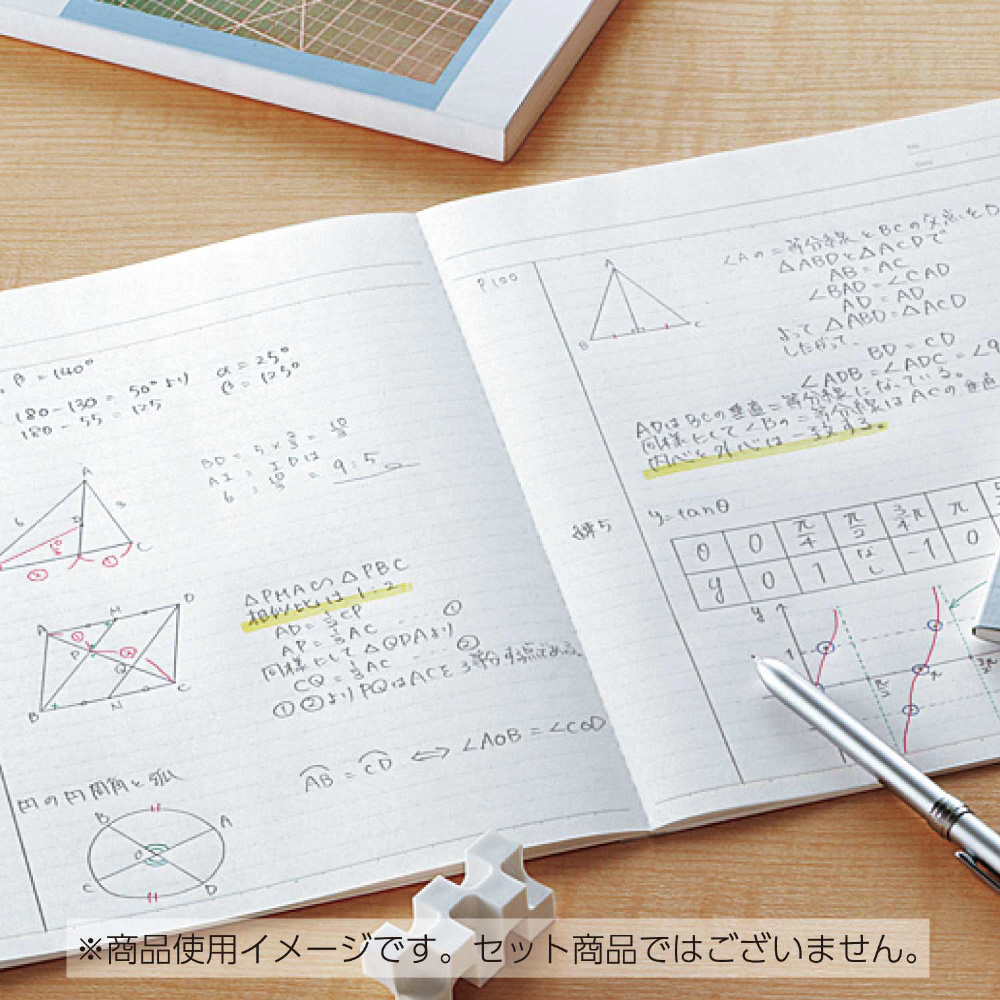 β = 140°
180 - 130 = 50° より α = 25°
180 - 55 = 125 β = 125°
BD = 5 ×
9:5
A
6
3
C
A
M
D
P
Q
B
N
C
△PMA∽△PBC
相似比は 1:2
AD = CP
AP = 1/3 AC ... ①
同様にして △QDAより
CQ = 1/3 AC ... ②
①②より PQはACを3等分する点である。
円の円周角と弧
AB = CD ⇔ ∠AOB = ∠COD
B
A
O
C
D
No.
Date
P100
A
B
C
∠Aの二等分線とBCの交点をD
△ABDと△ACDで
AB = AC
∠BAD = ∠CAD
AD = AD
よって △ABD = △ACD
したがって、
BD = CD
∠ADB = ∠ADC = ∠9
ADはBCの垂直二等分線になっている。
同様にして∠Bの二等分線はACの垂直
内心と外心は一致する。
5
y = tanθ
θ 0 π/4 π/2 3/4π π
y 0 1 なし -1 0
y
1
π/2
π
※商品使用イメージです。セット商品ではございません。